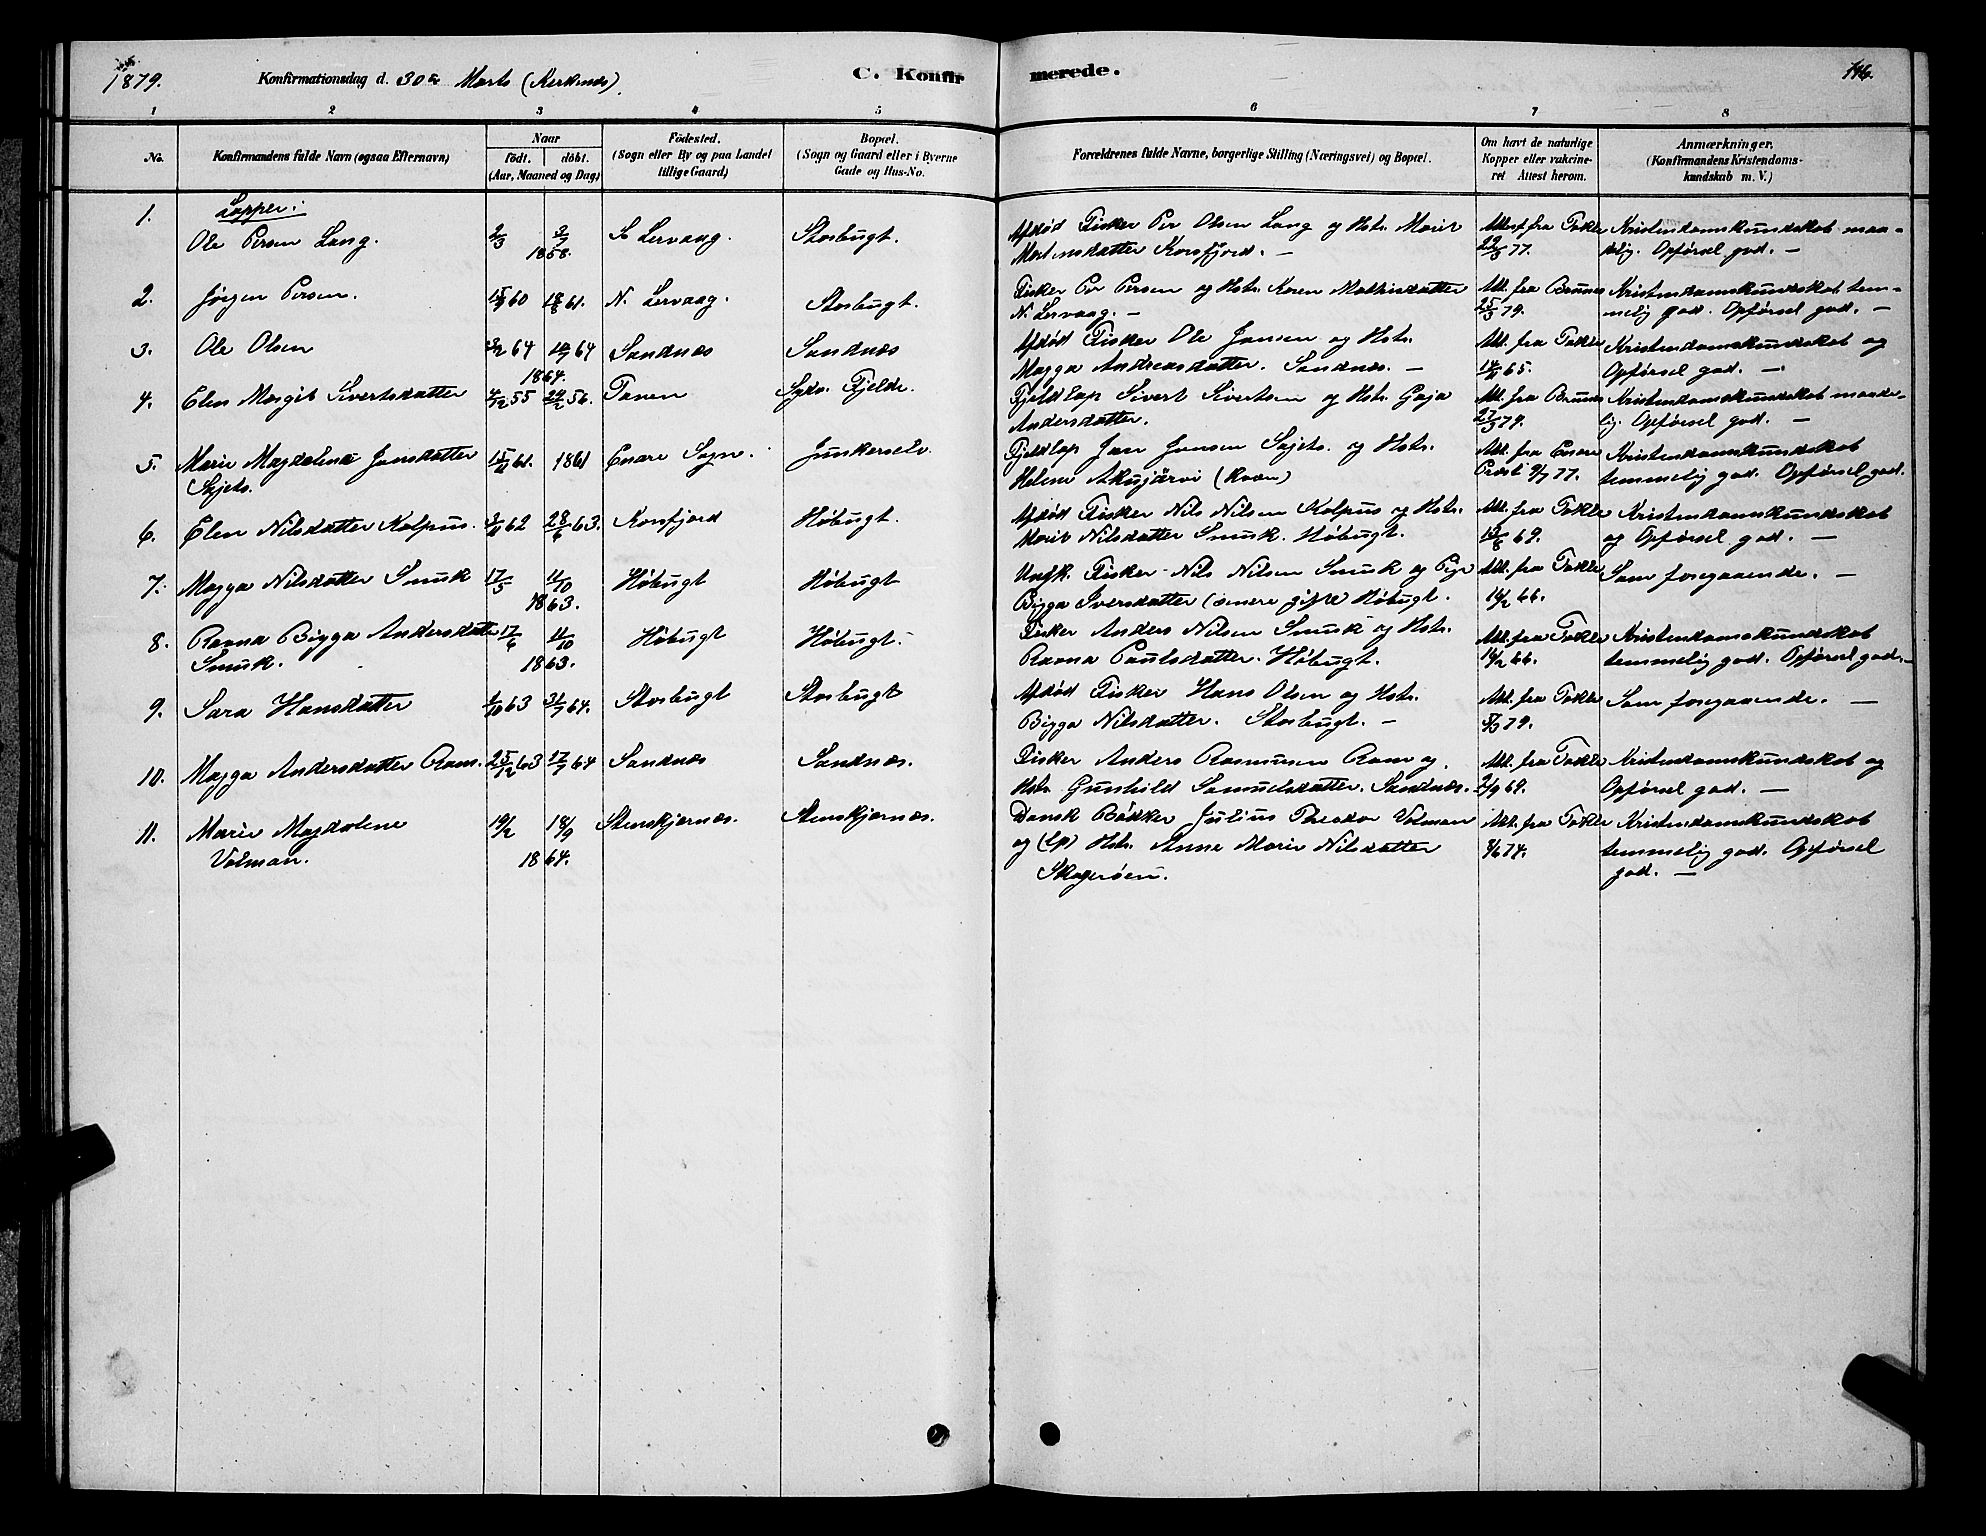 1879. Konfirmationsdag d. 30te Marts (Kirkenes). C. Konfirmerede. 146.
1 2 3 4 5 6 7 8
No. Konfirmandens fulde Navn (ogsaa Efternavn) Naar født. døbt. (Aar, Maaned og Dag) Fødested. (Sogn eller By og paa Landet tillige Gaard) Bopæl. (Sogn og Gaard eller i Byerne Gade og Hus-No. Forældrenes fulde Navne, borgerlige Stilling (Næringsvei) og Bopæl. Om havt de naturlige Kopper eller vakcineret Attest herom. Anmærkninger. (Konfirmandens Kristendomskundskab m. V.)
Lapper:
1. Ole Persen Lang. 2/3 2/7 1858. S. Lervaag. Storbugt. Afdød Fisker Per Olsen Lang og Hstr. Marit Attest fra Tokle Kristendomskundskab maa-
Mortensdatter Korsfjord. — 22/3 77. delig. Opførsel god. —
2. Jørgen Persen. 60 61. N. Lervaag. Storbugt. Fisker Per Persen og Hstr. Karen Mathisdatter Att. fra Kristendomskundskab tem-
N. Lervaag. — 25/3 79. melig god. Opførsel god. —
3. Ole Olsen 64 64 1864. Sandnæs Sandnæs Afdød Fisker Ole Jansen og Hstr. Att. fra Tokle Kristendomskundskab og
Magga Andreasdatter. Sandnæs. — 65. Opførsel god. —
4. Elen Margit Sivertsdatter 4/12 55 24/2 56. Tanen Sydv. Fjelde. Fjeldlap Sivert Sivertsen og Hstr. Gaja Att. fra Kristendomskundskab maade-
Andersdatter. 27/3 79. lig. Opførsel god. —
5. Marie Magdalena Jansdatter 61. 1861 Enare Sogn. Junkerselv. Fjeldlap Jan Jansen Sajets. og Hstr. Att. fra Enare Kristendomskundskab
Sajets. Helene Akujärvi (Kvæn) Præst 9/7 77. temmelig god. Opførsel god.
6. Elen Nilsdatter Kalpus. 62 28/6 63. Korsfjord Høbugt. Afdød Fisker Nils Nilsen Kalpus og Hstr. Att. fra Tokle Kristendomskundskab
Marit Nilsdatter Smuk. Høbugt. 69. og Opførsel god. —
7. Magga Nilsdatter Smuk 17/5 11/10 1863. Høbugt Høbugt Ungk. Fisker Nils Nilsen Smuk og Pige Att. fra Tokle Som foregaaende. —
Bigga Iversdatter (senere gift) Høbugt. 14/2 66.
8. Ravna Bigga Andersdatter 17/6 11/10 Høbugt Høbugt. Fisker Anders Nilsen Smuk og Hstr. Att. fra Tokle Kristendomskundskab
Smuk. 1863. Ravna Paulsdatter. Høbugt. 14/2 66. temmelig god. Opførsel god. —
9. Sara Hansdatter 1/10 63 31/7 64. Storbugt Storbugt Afdød Fisker Hans Olsen og Hstr. Att. fra Tokle Som foregaaende. —
Bigga Nilsdatter. Storbugt. — 8/3 79.
10. Magga Andersdatter Ram. 25/12 63 17/7 64 Sandnæs Sandnæs. Fisker Anders Rasmusen Ram og Att. fra Tokle Kristendomskundskab og
Hstr. Gunhild Samuelsdatter. Sandnæs. 2/9 69. Opførsel god. —
11. Marie Magdalene 19/2 18/9 Stenskjærnæs. Stenskjærnæs. Dansk Bødker Julius Theodor Volman Att. fra Tokle Kristendomskundskab
Volman. 1864. og (Lp) Hstr. Anne Marie Nilsdatter 8/6 74. temmelig god. Opførsel
Skogerøen. god. —